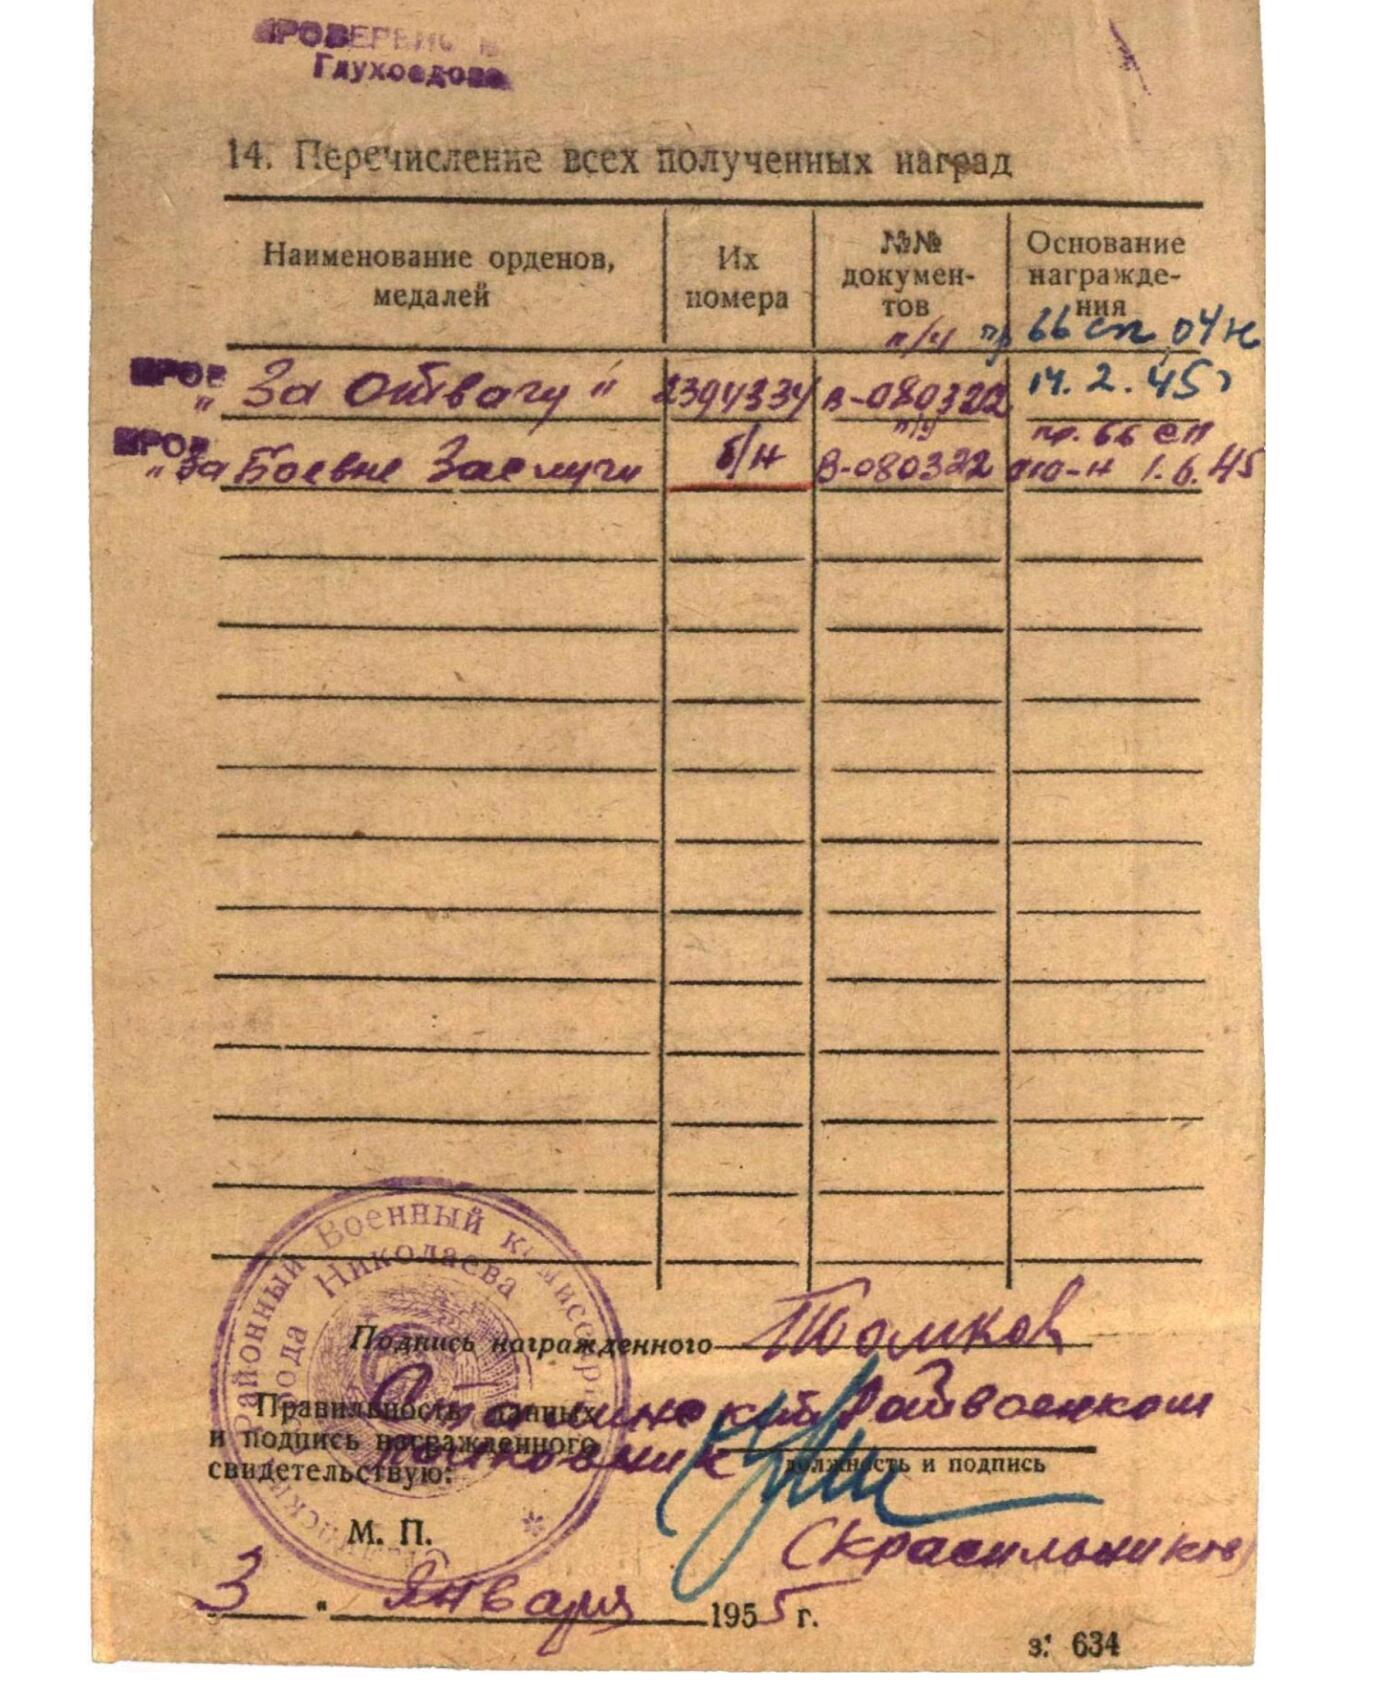 ПРОВЕРЕНО
Глухоедова
14. Перечисление всех полученных наград
Наименование орденов, медалей
Их номера
№№ докумен-
тов
Основание
награжде-
ния
п/ч пр 66 сп 04 н
14. 2. 45 г
ПРОВ
„За Отвагу“ 2394334 В-080322
п/ч пр. 66 сп
ПРОВ
„За Боевые Заслуги б/н В-080322 010-н 1.6.45
Районный Военный комиссариат
города Николаева
Подпись награжденного Томков
Правильность данных
и подпись награжденного
свидетельствую:
Сталинский Райвоенком
полковник
должность и подпись
(Красильников)
М. П.
3 „ Января 1955 г.
з. 634